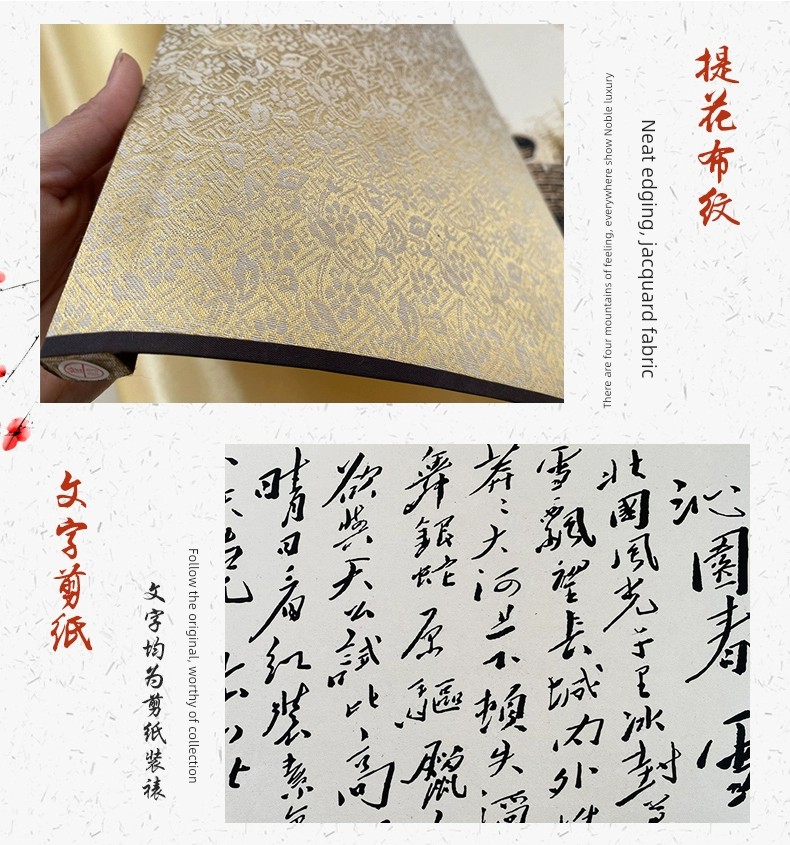 提花布纹
Neat edging, jacquard fabric
There are four mountains of feeling, everywhere show Noble luxury
文字剪纸
文字均为剪纸装裱
Follow the original, worthy of collection
沁園春 雪
北國風光千里冰封
雪飄望長城内外
莽〻大河上下頓失滔
舞銀蛇原驅臘
欲與天公試比高
晴日看紅裝素